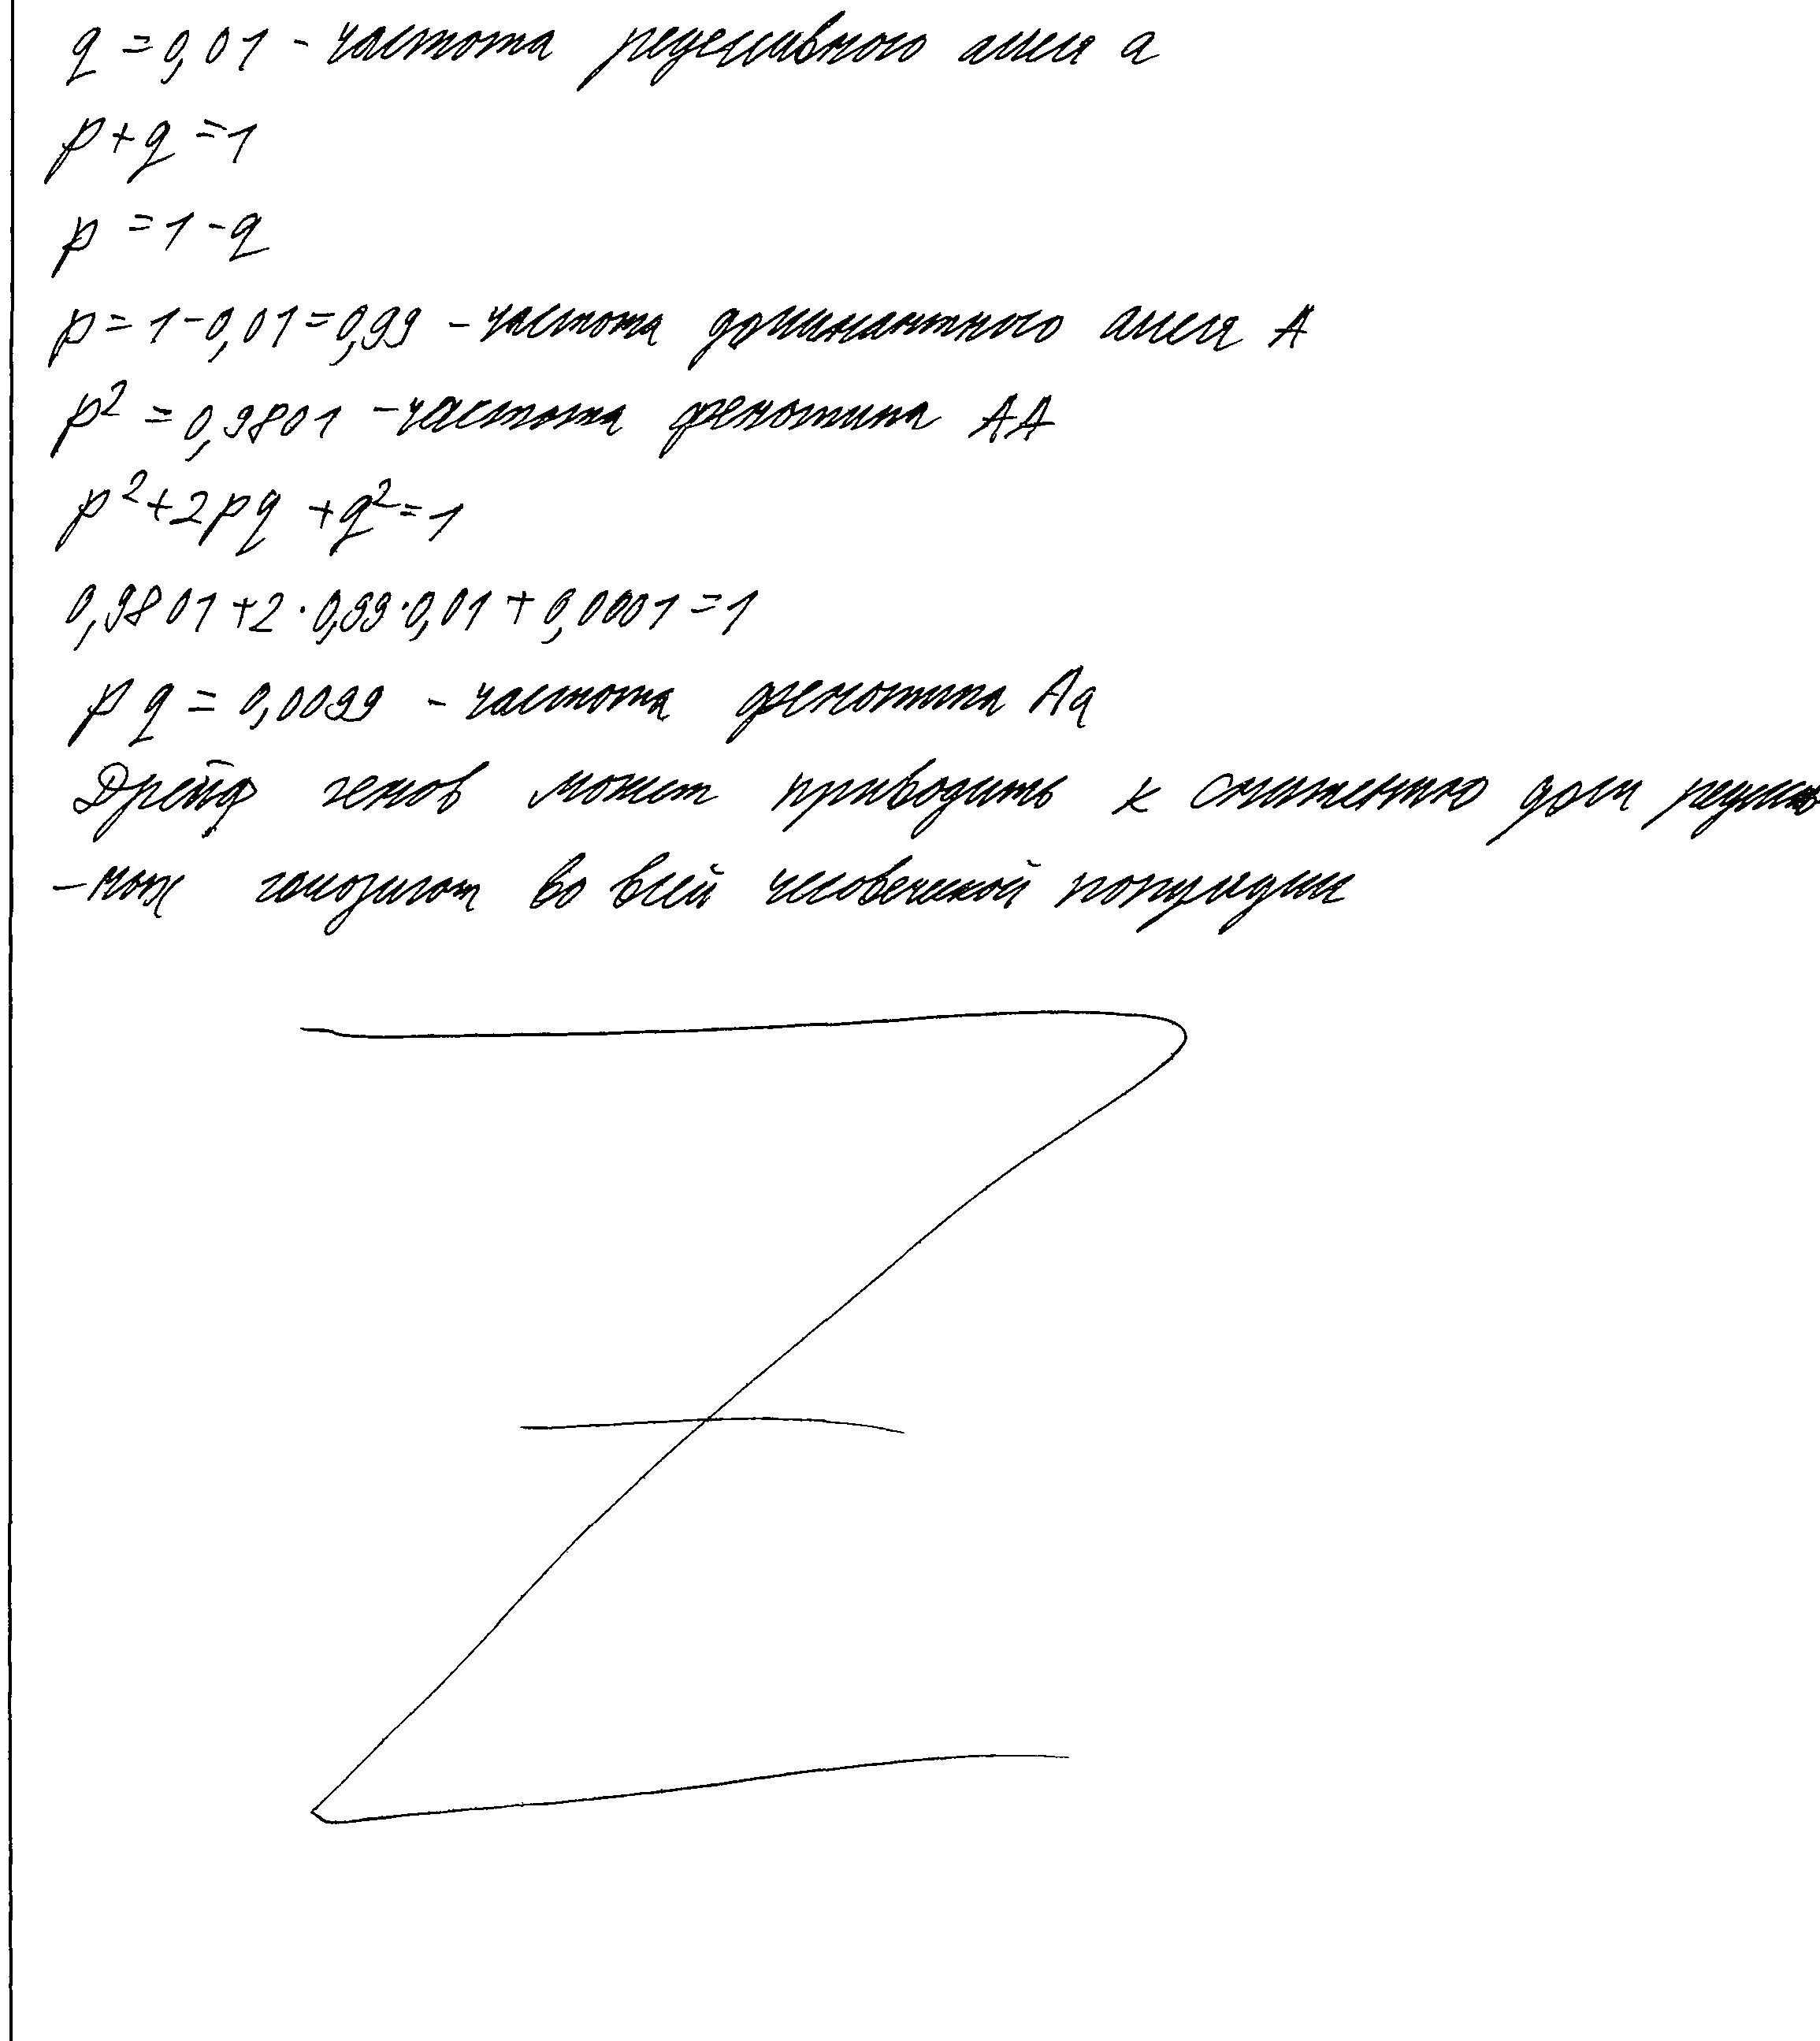 q = 0,01 - частота рецессивного аллеля a
p + q = 1
p = 1 - q
p = 1 - 0,01 = 0,99 - частота доминантного аллеля A
p² = 0,9801 - частота фенотипа AA
p² + 2pq + q² = 1
0,9801 + 2 · 0,99 · 0,01 + 0,0001 = 1
pq = 0,0099 - частота фенотипа Aa
Дрейф генов может приводить к снижению доли
-ных гомозигот во всей человеческой популяции